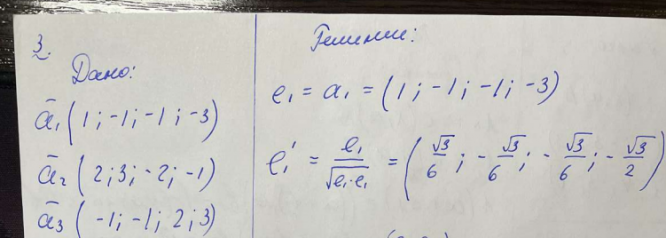 3.
Дано:
ā₁ (1; -1; -1; -3)
ā₂ (2; 3; -2; -1)
ā₃ (-1; -1; 2; 3)
Решение:
e₁ = a₁ = (1; -1; -1; -3)
e₁' = e₁/√(e₁·e₁) = (√3/6; -√3/6; -√3/6; -√3/2)